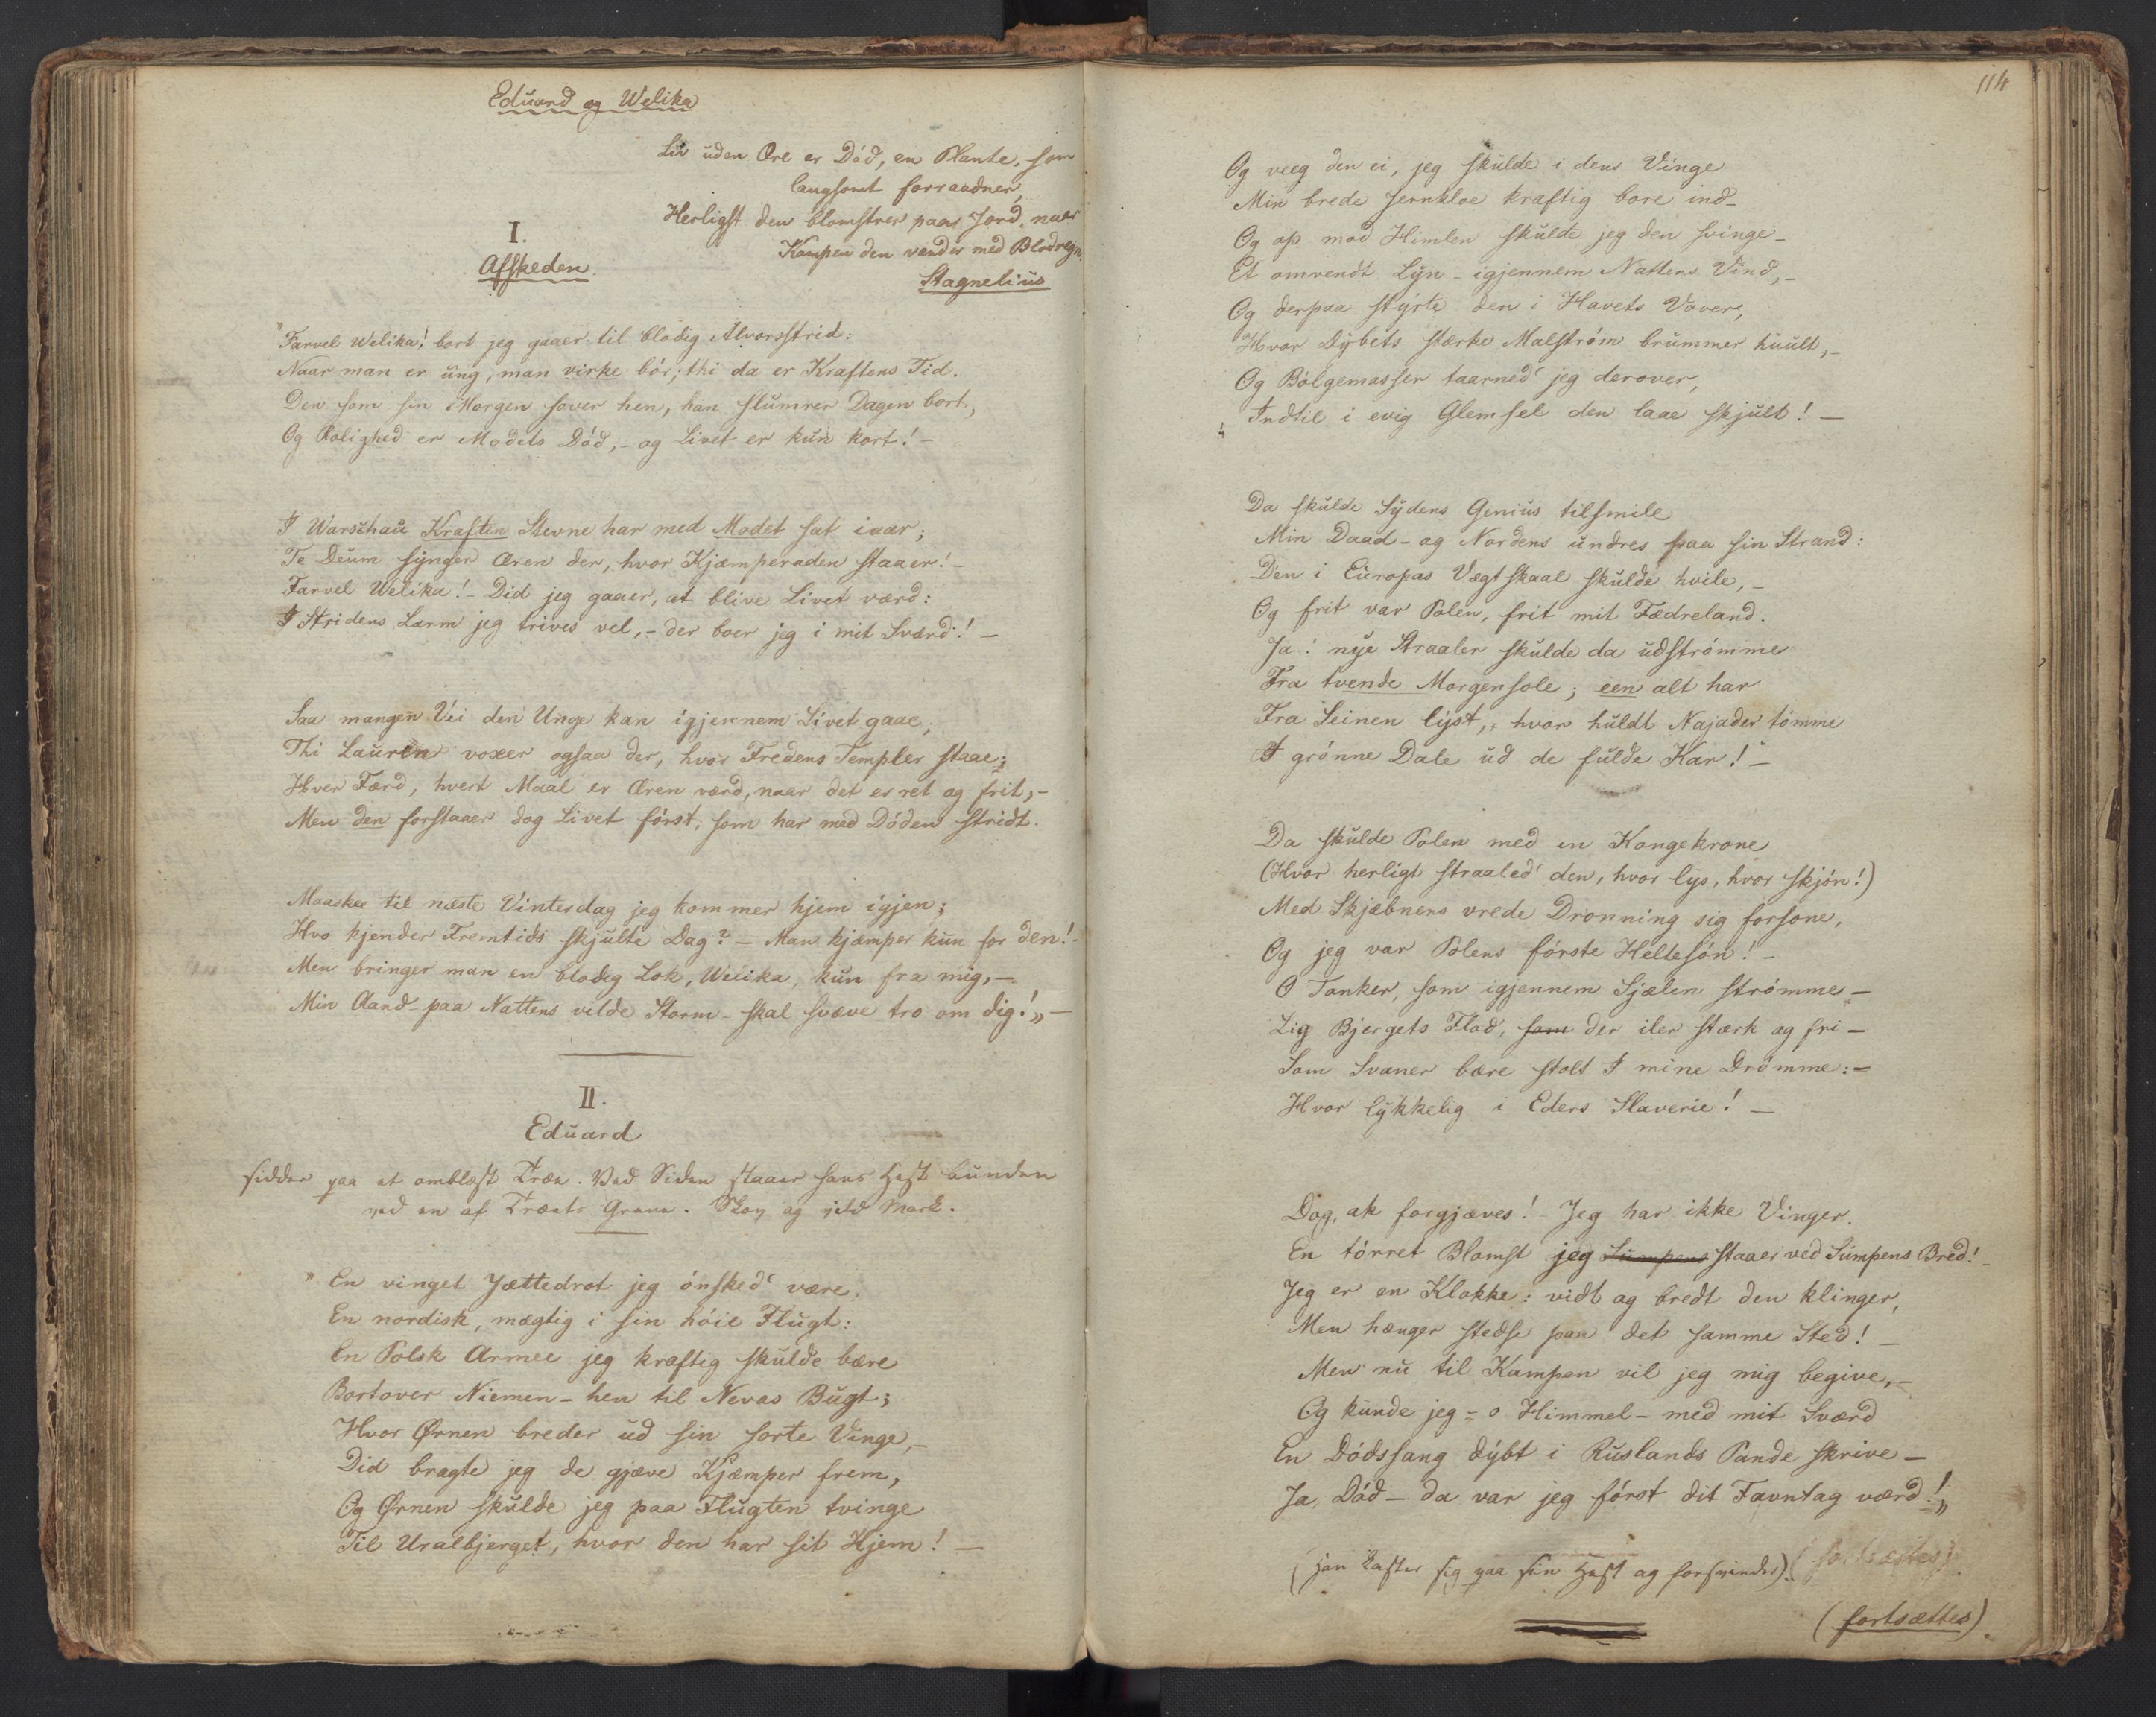 Eduard og Welika
Liv uden Ære er Död, en Plante, som
langsomt forraadner,
Herligst den blomstrer paa Jord, naar
Kampen den vander med Blodregn.
Stagnelius
I.
Afskeden.
"Farvel Welika! bort jeg gaaer til blodig Alvorsstrid:
Naar man er ung, man virke bör; thi da er Kraftens Tid.
Den som sin Morgen sover hen, han slumrer Dagen bort,
Og Rolighed er Modets Död, - og Livet er kun kort! -
I Warschau Kraften Stevne har med Modet sat iaar;
Te Deum synger Æren der, hvor Kjæmperaden staaer! -
Farvel Welika! - Did jeg gaaer, at blive Livet værd:
I Stridens Larm jeg trives vel, - der boer jeg i mit Sværd! -
Saa mangen Vei den Unge kan igjennem Livet gaae;
Thi Lauren voxer ogsaa der, hvor Fredens Templer staae;
Hver Færd, hvert Maal er Æren værd, naar det er ret og frit, -
Men den forstaaer dog Livet först, som har med Döden stridt.
Maaskee til næste Vinterdag jeg kommer hjem igjen;
Hvo kjender Fremtids skjulte Dag? - Man kjæmper kun for den! -
Men bringer man en blodig Lok, Welika, kun fra mig, -
Min Aand - paa Nattens vilde Storm - skal svæve tro om dig!" -
II.
Eduard
sidder paa et omblæst Træe. Ved Siden staaer hans Hest bunden
ved en af Træets Grene. Skov og vild Mark.
"En vinget Jættedrot jeg önsked' være,
En nordisk, mægtig i sin höie Flugt:
En Polsk Armee jeg kraftig skulde bære
Bortover Niemen - hen til Nevas Bugt;
Hvor Ørnen breder ud sin sorte Vinge, -
Did bragte jeg de gjæve Kjæmper frem,
Og Ørnen skulde jeg paa Flugten tvinge
Til Uralbjerget, hvor den har sit Hjem! -
114
Og veeg den ei, jeg skulde i dens Vinge
Min brede Jernkloe kraftig bore ind -
Og op mod Himlen skulde jeg den svinge -
Et omvendt Lyn - igjennem Nattens Vind, -
Og derpaa styrte den i Havets Vover,
Hvor Dybets stærke Malström brummer huult, -
Og Bölgemasser taarned' jeg derover,
Indtil i evig Glemsel den laae skjult! -
Da skulde Sydens Genius tilsmile
Min Daad - og Nordens undres paa sin Strand:
Den i Europas Vægtskaal skulde hvile, -
Og frit var Polen, frit mit Fædreland.
Ja! nye Straaler skulde da udströmme
Fra tvende Morgensole; een alt har
Fra Seinen lyst, hvor huldt Najader tömme
I grönne Dale ud de fulde Kar! -
Da skulde Polen med en Kongekrone
(Hvor herligt straaled' den, hvor lys, hvor skjön!)
Med Skjæbnens vrede Dronning sig forsone,
Og jeg var Polens förste Heltesön! -
O Tanker, som igjennem Sjælen strömme -
Lig Bjergets Flod, som der iler stærk og fri -
Som Svaner bære stolt I mine Drömme: -
Hvor lykkelig i Eders Slaverie! -
Dog, ak forgjæves! - Jeg har ikke Vinger.
En törret Blomst jeg Sumpens staaer ved Sumpens Bred! -
Jeg er en Klokke: vidt og bredt den klinger,
Men hænger stedse paa det samme Sted! -
Men nu til Kampen vil jeg mig begive, -
Og kunde jeg - o Himmel - med mit Sværd
En Dödssang dybt i Ruslands Pande skrive -
Ja, Död - da var jeg först dit Favntag værd!"
(han kaster sig paa sin Hest og forsvinder). (fortsættes)
(fortsættes).